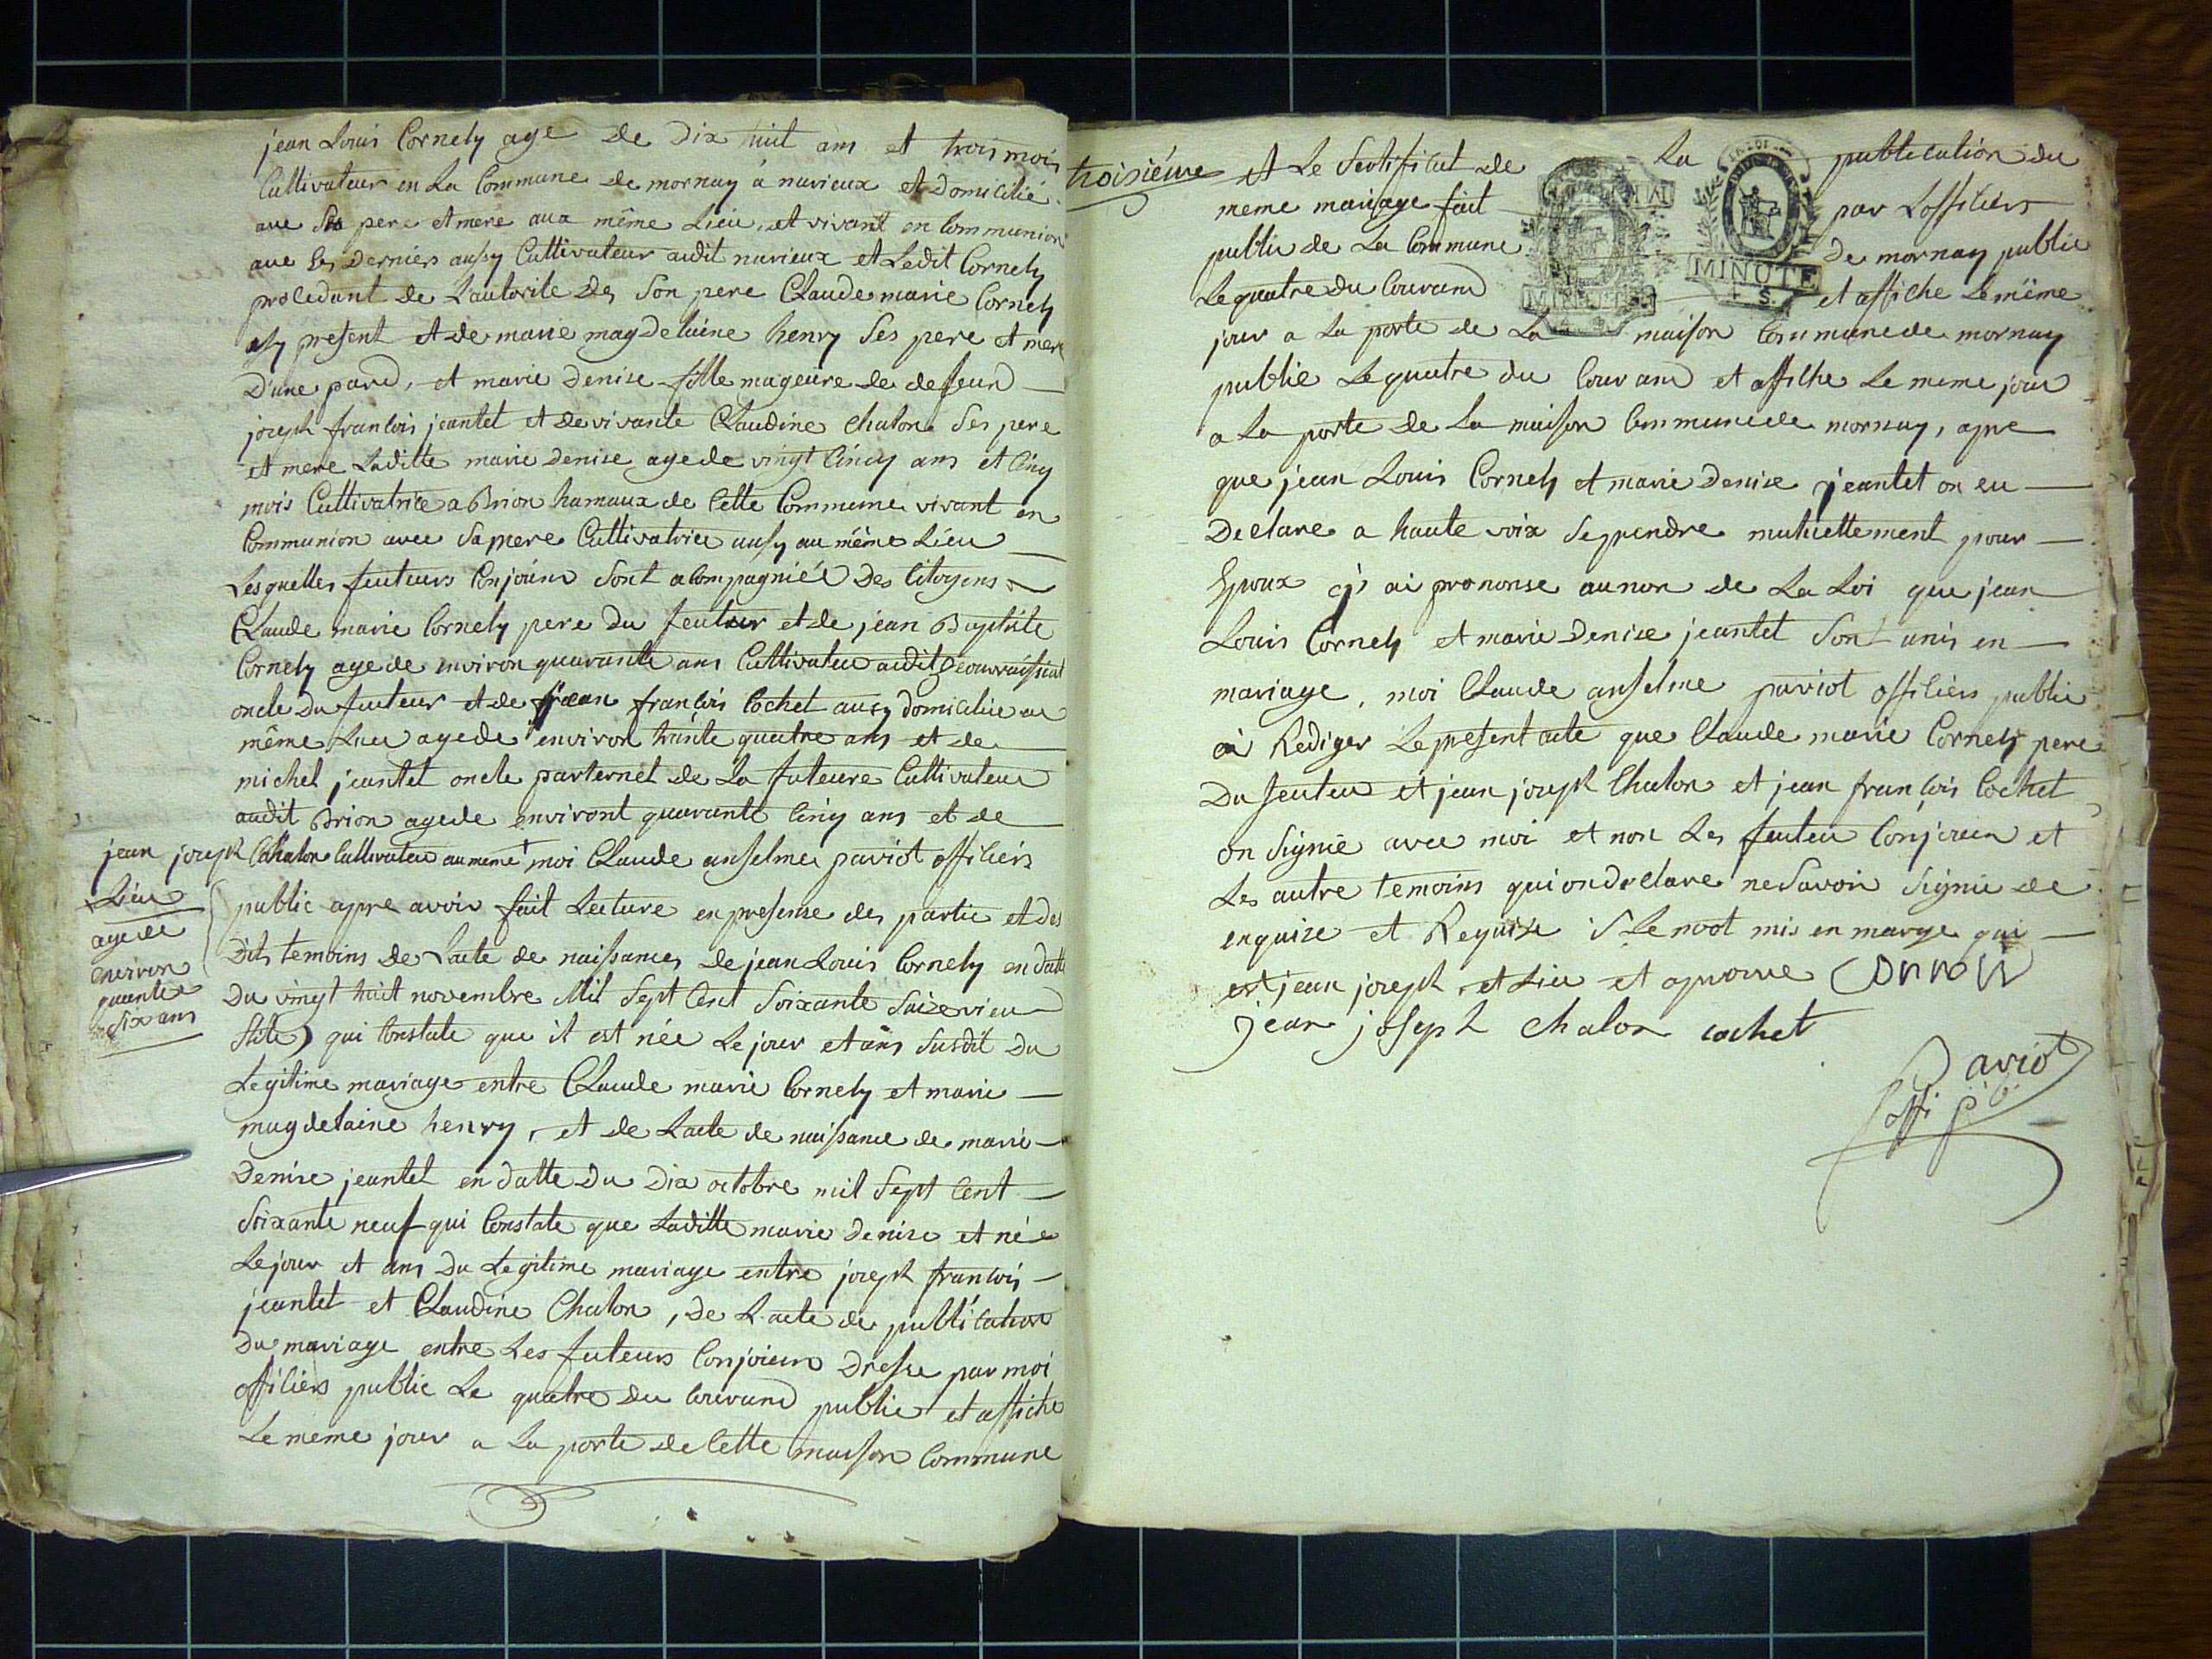 jean Louis Cornely age de dix huit ans et trois mois
Cultivateur en La Commune de mornay à navieux et domicilié
ave Ses pere et mere aux même Lieu, et vivant en Communion
ave Ses derniers aussy Cultivateur audit navieux et Ledit Cornely
procedant de L'autorite de Son pere Claude marie Cornely
assy present et de marie magdelaine henry Ses pere et mere
D'une pard, et marie denise fille mageure de defeun
joseph francois jeantet et de vivante Claudine Chalon Ses pere
et mere Laditte marie denise age de vingt Cincq ans et Cinq
mois Cultivatrice a Brion hamaux de Cette Commune vivant en
Communion avec Sa mere Cultivatrice aussy au même Lieu
Lesquelles feuteurs Conjoins Sont acompagniée Des Citoyens
Claude marie Cornely pere du feuteur et de jean Baptiste
Cornely age de environ quarante ans Cultivateu audit
oncle du feuteur et de jean françois Cochet aussy domicilie au
même Lieu age de environ trante quatre ans et de
michel jeantet oncle parternel de La futeure Cultivateur
audit Brion age de environt quarante Cinq ans et de
jean joseph Chalon Cultivateu au meme moi Claude anselme paviot officiers
Lieu
age de
environ
quante
Six ans
public appre avoir fait Lecture en presense des partie et des
Dits temoins de L'acte de naissances de jean Louis Cornely en datte
Du vingt huit novembre Mil Sept Cent Soixante Saize vieu
Stile) qui Constate que il est née Le jour et ans Susdit du
Legitime mariage entre Claude marie Cornely et marie
magdelaine henry, et de L'acte de naissance de marie
Denise jeantet en datte Du Dix octobre mil Sept Cent
Soixante neuf qui Constate que Laditte marie denise et née
Le jour et ans Du Legitime mariage entre joseph francois
jeantet et Claudine Chalon, De L'acte de publication
Du mariage entre Les futeurs Conjoiens Dresse par moi
officiers public Le quatre du Courand public et affiche
Le meme jour a La porte de Cette maison Commune
troisiéme et Le Sertificat de La publication du
meme mariage fait par L'officiers
public de La Commune de mornay public
Le quatre Du Courand et affiche Le même
MINUTE
MINUTE
jour a La porte de La maison Commune de mornay
public Le quatre du Courand et affiche Le meme jour
a La porte de La maison Commune de mornay, apre
que jean Louis Cornely et marie Denise jeantet on eu
Declare a haute voix Se prendre mutuellement pour
Epoux j'ai prononse au non de La Loi que jean
Louis Cornely et marie Denise jeantet Sont unis en
mariage, moi Claude anselme paviot officiers public
ai Rediger Le present acte que Claude marie Cornely pere
Du feuteu et jean joseph Chalon et jean françois Cochet
on Signié avec moi et non Les feuteu Conjoien et
Les autre temoins qui on declare ne Savoir Signié de
enquize et Requise Le mot mis en marge qui
est jean joseph et Lieu et aprouve
jean joseph chalon cochet
Paviot
offi p